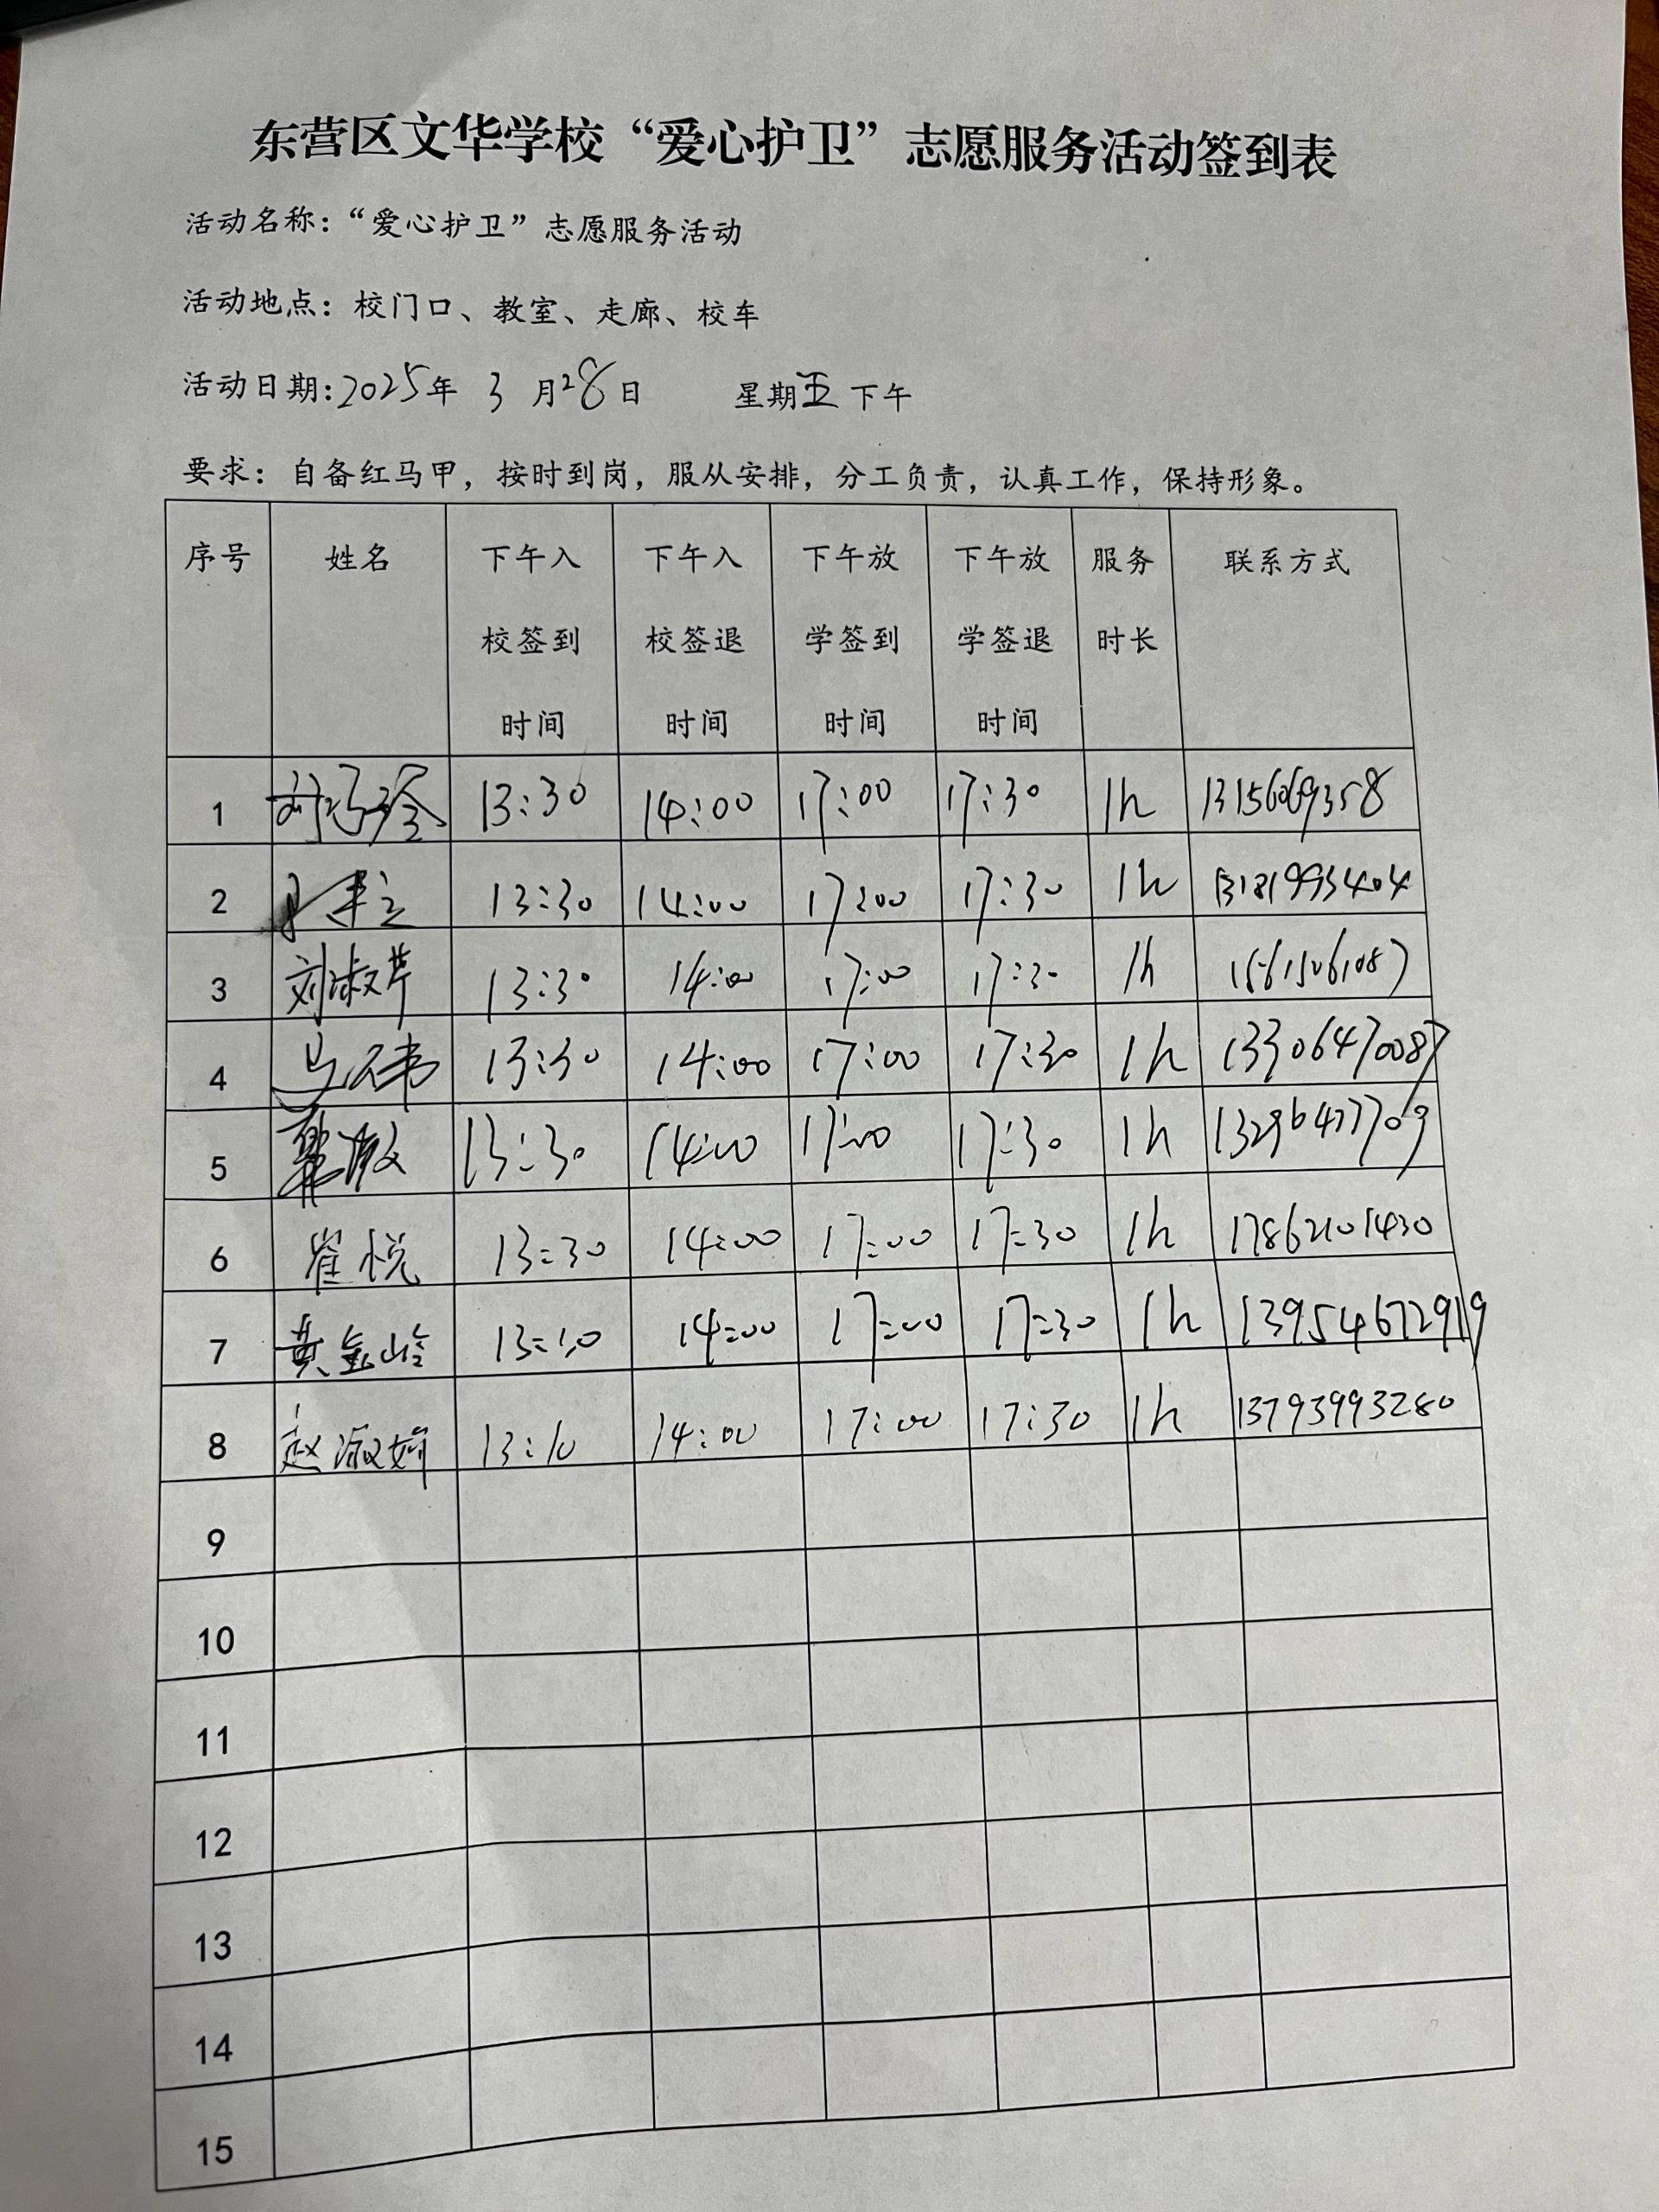 东营区文华学校“爱心护卫”志愿服务活动签到表
活动名称：“爱心护卫”志愿服务活动
活动地点：校门口、教室、走廊、校车
活动日期：2025年 3 月28日 星期五 下午
要求：自备红马甲，按时到岗，服从安排，分工负责，认真工作，保持形象。
序号 姓名 下午入校签到时间 下午入校签退时间 下午放学签到时间 下午放学签退时间 服务时长 联系方式
1 13:30 14:00 17:00 17:30 1h 13156069358
2 13:30 14:00 17:00 17:30 1h
3 刘淑芹 13:30 14:00 17:00 17:30 1h 15615061087
4 13:30 14:00 17:00 17:30 1h 13306470087
5 13:30 14:00 17:00 17:30 1h
6 崔悦 13:30 14:00 17:00 17:30 1h 17862101430
7 14:00 17:00 17:30 1h 13954672919
8 14:00 17:00 17:30 1h 13793993280
9
10
11
12
13
14
15